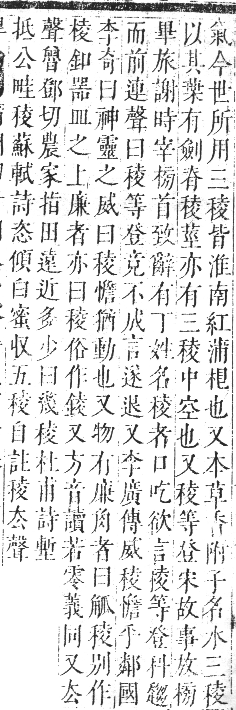 氣今世所用三稜皆淮南紅蒲根也又本草香附子名水三稜
以其葉有劍脊稜莖亦有三稜中空也又稜等登宋故事放榜
畢旅謝時宰榜首致辭有丁姓名稜者口吃欲言稜等登科
而前連聲曰稜等登竟不成言遂退又李廣傳威稜憺乎鄰國
李奇曰神靈之威曰稜憺猶動也又物有廉角者曰觚稜別作
棱釦器皿之上廉者亦曰稜俗作錂又方音讀若零義同又去
聲魯鄧切農家指田遠近多少曰幾稜杜甫詩塹
抵公畦稜蘇軾詩恣傾白蜜収五稜自註稜去聲